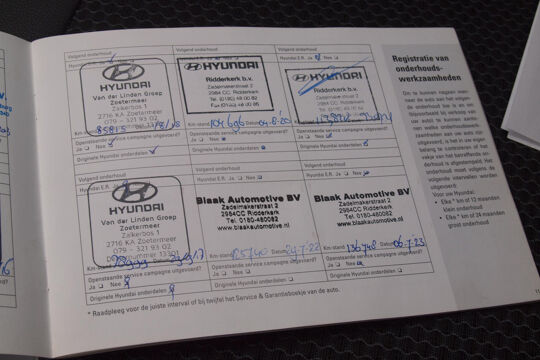 Volgend onderhoud
Hyundai E.R. Ja
HYUNDAI
Van der Linden Groep
Zoetermeer
Zilkerbos 1
2716 KA Zoetermeer
079 - 321 93 02
85815
Openstaande service campagne uitgevoerd?
Ja Nee
Originele Hyundai onderdelen
Volgend onderhoud
HYUNDAI
Ridderkerk b.v.
Zadelmakerstraat 2
2984 CC Ridderkerk
Tel. (0180) 48 00 82
Km-stand Datum
Openstaande service campagne uitgevoerd?
Ja Nee
Originele Hyundai onderdelen
Volgend onderhoud
Hyundai E.R. Ja
HYUNDAI
Ridderkerk b.v.
Zadelmakerstraat 2
2984 CC Ridderkerk
Openstaande service campagne uitgevoerd?
Ja Nee
Originele Hyundai onderdelen
Volgend onderhoud
Hyundai E.R. Ja
HYUNDAI
Van der Linden Groep
Zoetermeer
Zilkerbos 1
2716 KA Zoetermeer
079 - 321 93 02
Dealernummer
Km-stand
Openstaande service campagne uitgevoerd?
Ja Nee
Originele Hyundai onderdelen
Volgend onderhoud
Hyundai E.R. Ja Nee
Blaak Automotive BV
Zadelmakerstraat 2
2984CC Ridderkerk
Tel. 0180-480082
www.blaakautomotive.nl
Km-stand 125740 Datum 22
Openstaande service campagne uitgevoerd?
Ja Nee
Originele Hyundai onderdelen
Volgend onderhoud
Hyundai E.R. Ja Nee
Blaak Automotive BV
Zadelmakerstraat 2
2984CC Ridderkerk
Tel. 0180-480082
www.blaakautomotive.nl
Km-stand 136748 Datum 06-7-23
Openstaande service campagne uitgevoerd?
Ja Nee
Originele Hyundai onderdelen
* Raadpleeg voor de juiste interval of bij twijfel het Service & Garantieboekje van de auto.
Registratie van
onderhouds-
werkzaamheden
Om te kunnen nagaan wan-
neer de auto aan het volgen-
de onderhoud toe is en u
bijvoorbeeld bij verkoop van
uw auto te kunnen aanto-
nen welke onderhoudswerk-
zaamheden aan uw auto zijn
uitgevoerd, is het in uw eigen
belang te controleren of het
vakje van het betreffende on-
derhoud is afgestempeld. Het
onderhoud moet volgens de
volgende intervallen worden
uitgevoerd:
Voor uw Hyundai:
• Elke * km of 12 maanden
klein onderhoud
• Elke * km of 24 maanden
groot onderhoud